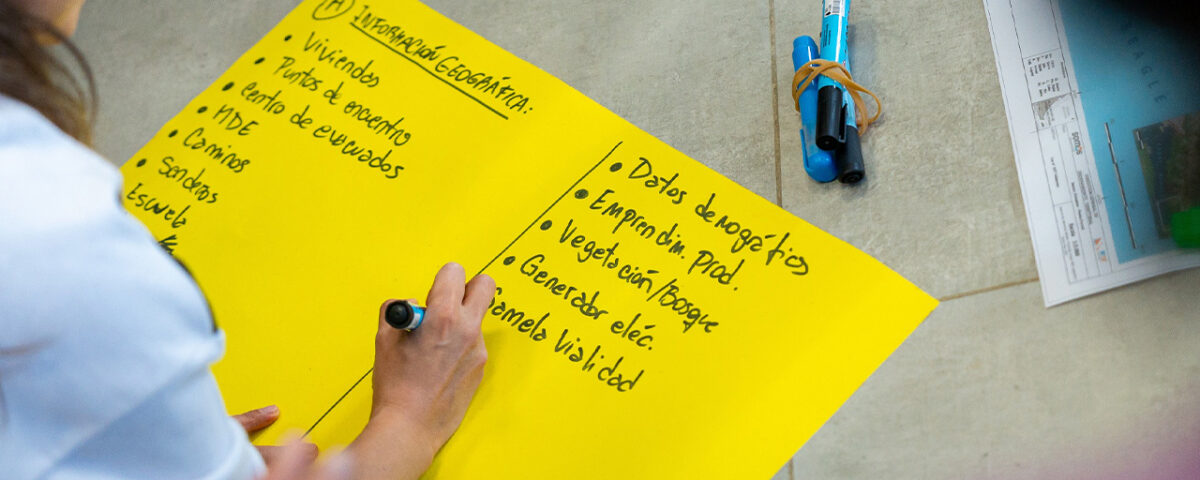 A
INFORMACIÓN GEOGRÁFICA:
• Viviendas
• Puntos de encuentro
• Centro de evacuados
• MDE
• Caminos
• Senderos
Escuela
• Datos demográficos
• Emprendim. Prod.
• Vegetación/Bosque
• Generador eléc.
Vialidad